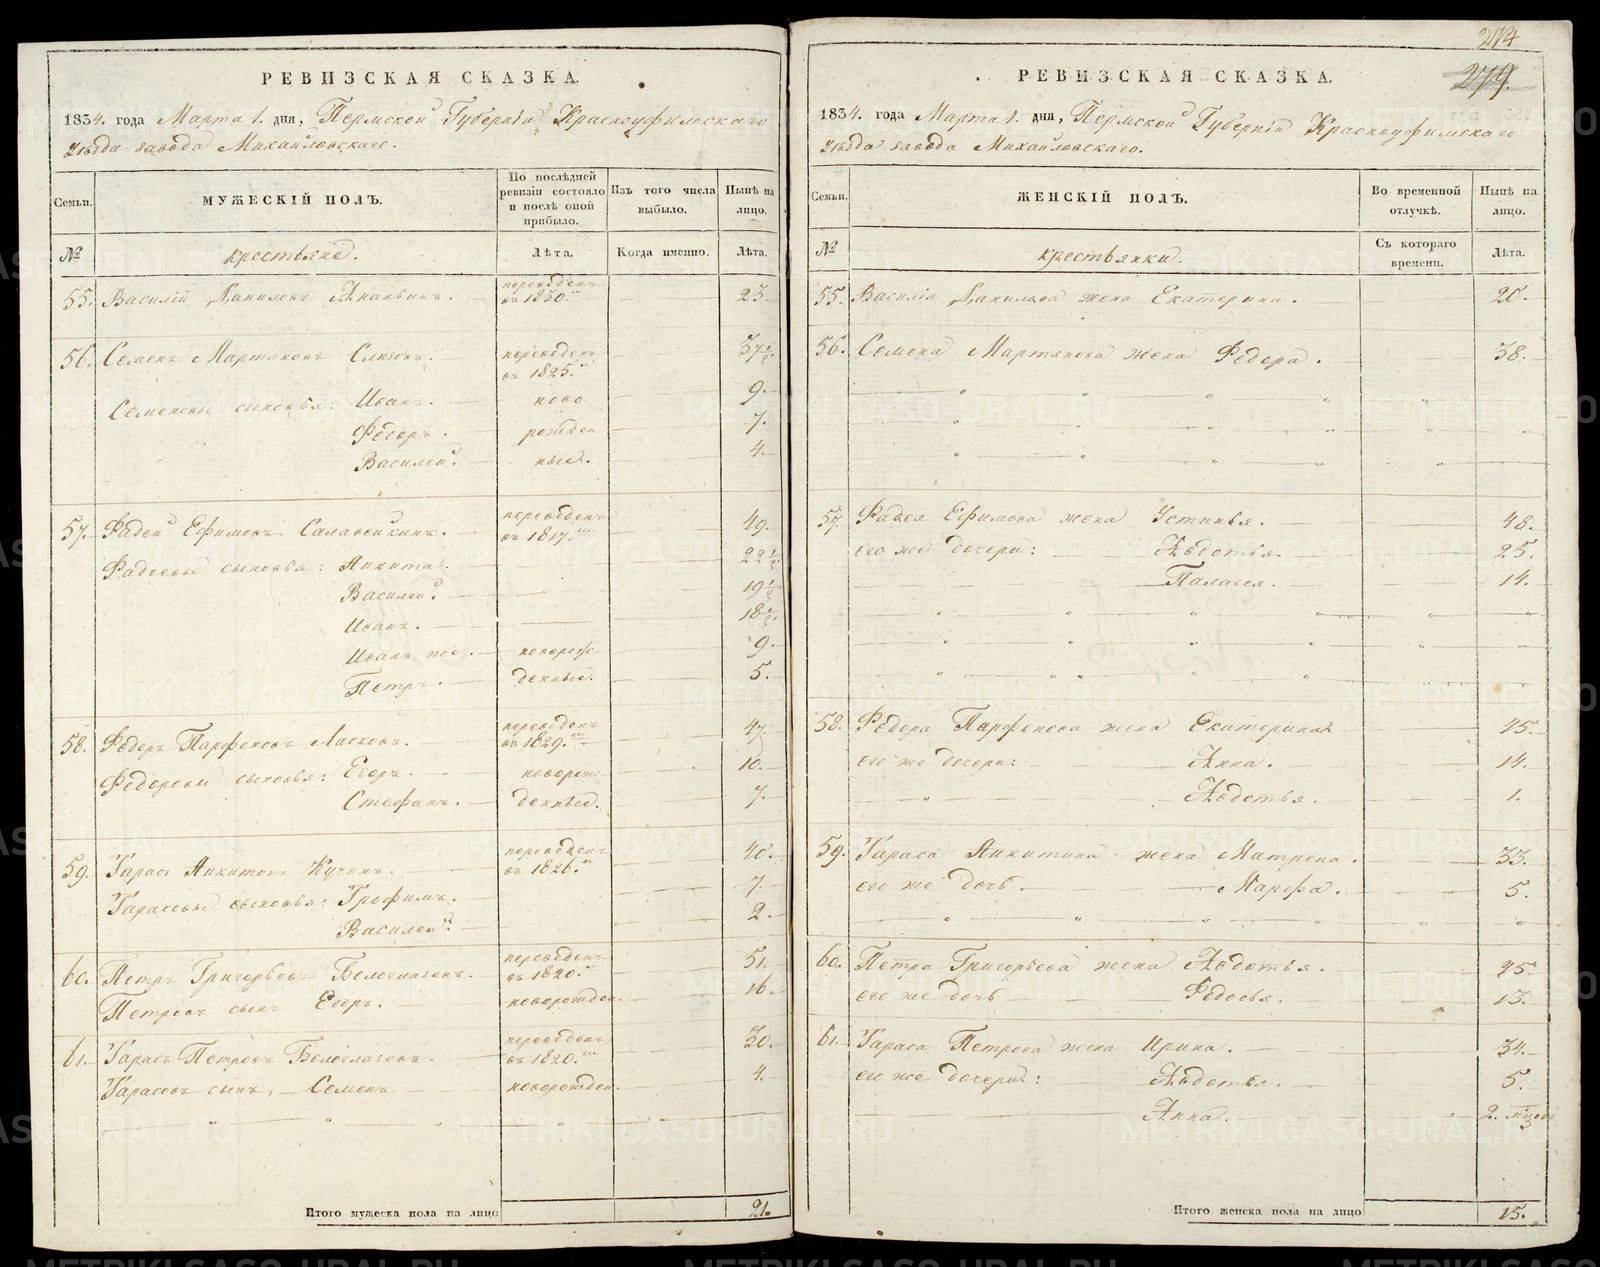 РЕВИЗСКАЯ СКАЗКА.
1834. года Марта 1. дня, Пермской Губерніи Красноуфимскаго
Уѣзда завода Михайловскаго.
Семьи.
МУЖЕСКІЙ ПОЛЪ.
По послѣдней ревизіи состояло и послѣ оной прибыло.
Изъ того числа выбыло.
Нынѣ на лицо.
№
крестьяне.
Лѣта.
Когда именно.
Лѣта.
55. Василій Даниловъ Ананьинъ. переведенъ въ 1830.м 23.
56. Семенъ Мартяновъ переведенъ въ 1825.м 37 1/2
Семеновы сыновья: Иванъ. ново 9.
Федоръ. рожден 7.
Василей. ные. 4.
57. Фадей Ефимовъ Салавейкинъ. переведенъ въ 1817.м 49.
Фадеевы сыновья: Никита. 22 1/2
Василей. 19 1/2
Иванъ. 18
Иванъ же. новорож 9.
Петръ. денные. 5.
58. Федоръ Парфеновъ Ласковъ. переведенъ въ 1829.м 47.
Федоровы сыновья: Егоръ. новорож 10.
Стефанъ. денные. 7.
59. Тарасъ Никитинъ Кучинъ. переведенъ въ 1826.м 40.
Тарасовы сыновья: Трофимъ. 7.
Василей. 2.
60. Петръ Григорьевъ Белоглазовъ. переведенъ въ 1820.м 51.
Петровъ сынъ Егоръ. новорожден. 16.
61. Тарасъ Петровъ Белоглазовъ. переведенъ въ 1820.м 30.
Тарасовъ сынъ, Семенъ новорожден. 4.
Итого мужеска пола на лицо 21.
274
279.
РЕВИЗСКАЯ СКАЗКА.
1834. года Марта 1. дня, Пермской Губерніи Красноуфимскаго
Уѣзда завода Михайловскаго.
Семьи.
ЖЕНСКІЙ ПОЛЪ.
Во временной отлучкѣ.
Нынѣ на лицо.
№
крестьянки.
Съ котораго времени.
Лѣта.
55. Василія Данилова жена Екатерина. 20.
56. Семена Мартянова жена Федора. 38.
57. Фадея Ефимова жена Устинья. 48.
его же дочери: Авдотья. 25.
Палагея. 14.
58. Федора Парфенова жена Екатерина 45.
его же дочери: Анна. 14.
Авдотья. 1.
59. Тараса Никитина жена Матрена. 33.
его же дочь. Марфа. 5.
60. Петра Григорьева жена Авдотья. 45.
его же дочь Федосья. 13.
61. Тараса Петрова жена Ирина. 34.
его же дочери: Авдотья. 5.
Анна. 2.
Итого женска пола на лицо 15.
METRIKI.GASO-URAL.RU